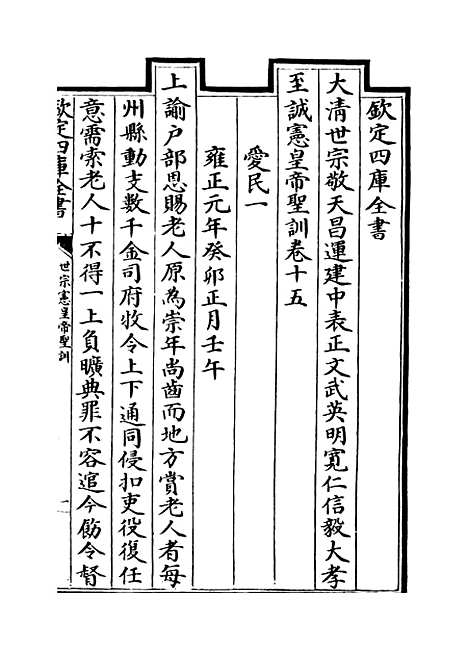 欽定四庫全書
大清世宗敬天昌運建中表正文武英明寬仁信毅大孝
至誠憲皇帝聖訓卷十五
愛民一
雍正元年癸卯正月壬午
上諭户部恩賜老人原為崇年尚齒而地方賞老人者每
州縣動支數千金司府牧令上下通同侵扣吏役復任
意需索老人十不得一上負曠典罪不容逭今飭令督
欽定四庫全書
世宗憲皇帝聖訓
一